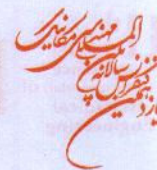 یازدهمین
کنفرانس سالانه
بین المللی
مهندسی مکانیک